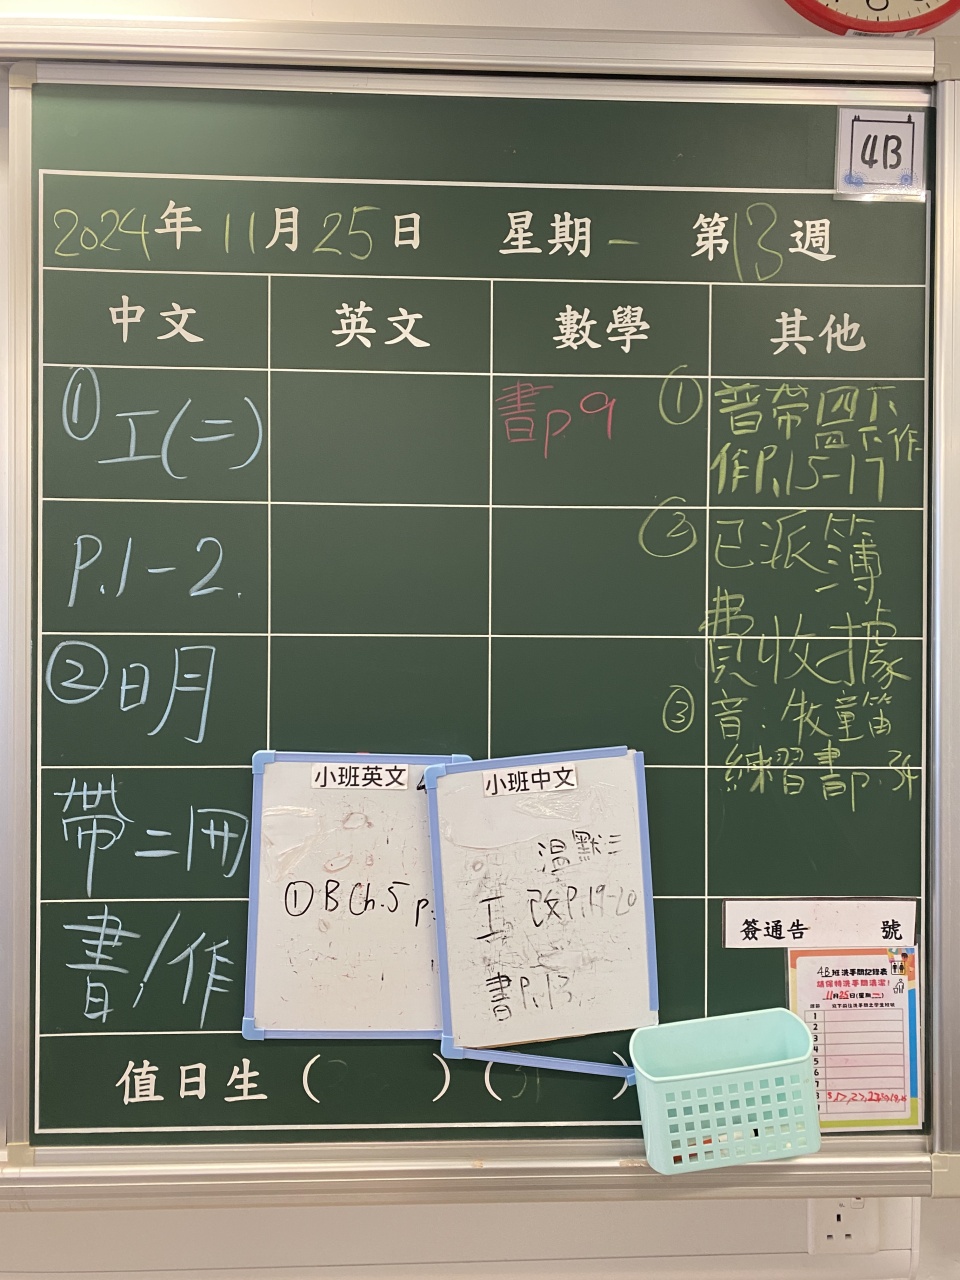 4B
2024年 11月25日 星期一 第13週
中文 英文 數學 其他
① 工(二)
P.1-2.
② 日月
帶二冊
書/作
書p.9
① 普帶四下
四下作
作P.15-17
② 已派簿
費收據
③ 音:牧童笛
練習書p.34
小班英文
① B Ch.5 p.
小班中文
溫默三
工 改P.19-20
書P.13
簽通告 號
4B班洗手間記錄表
請保持洗手間清潔!
11月25日(星期一)
1
2
3
4
5
6
7
值日生( )(